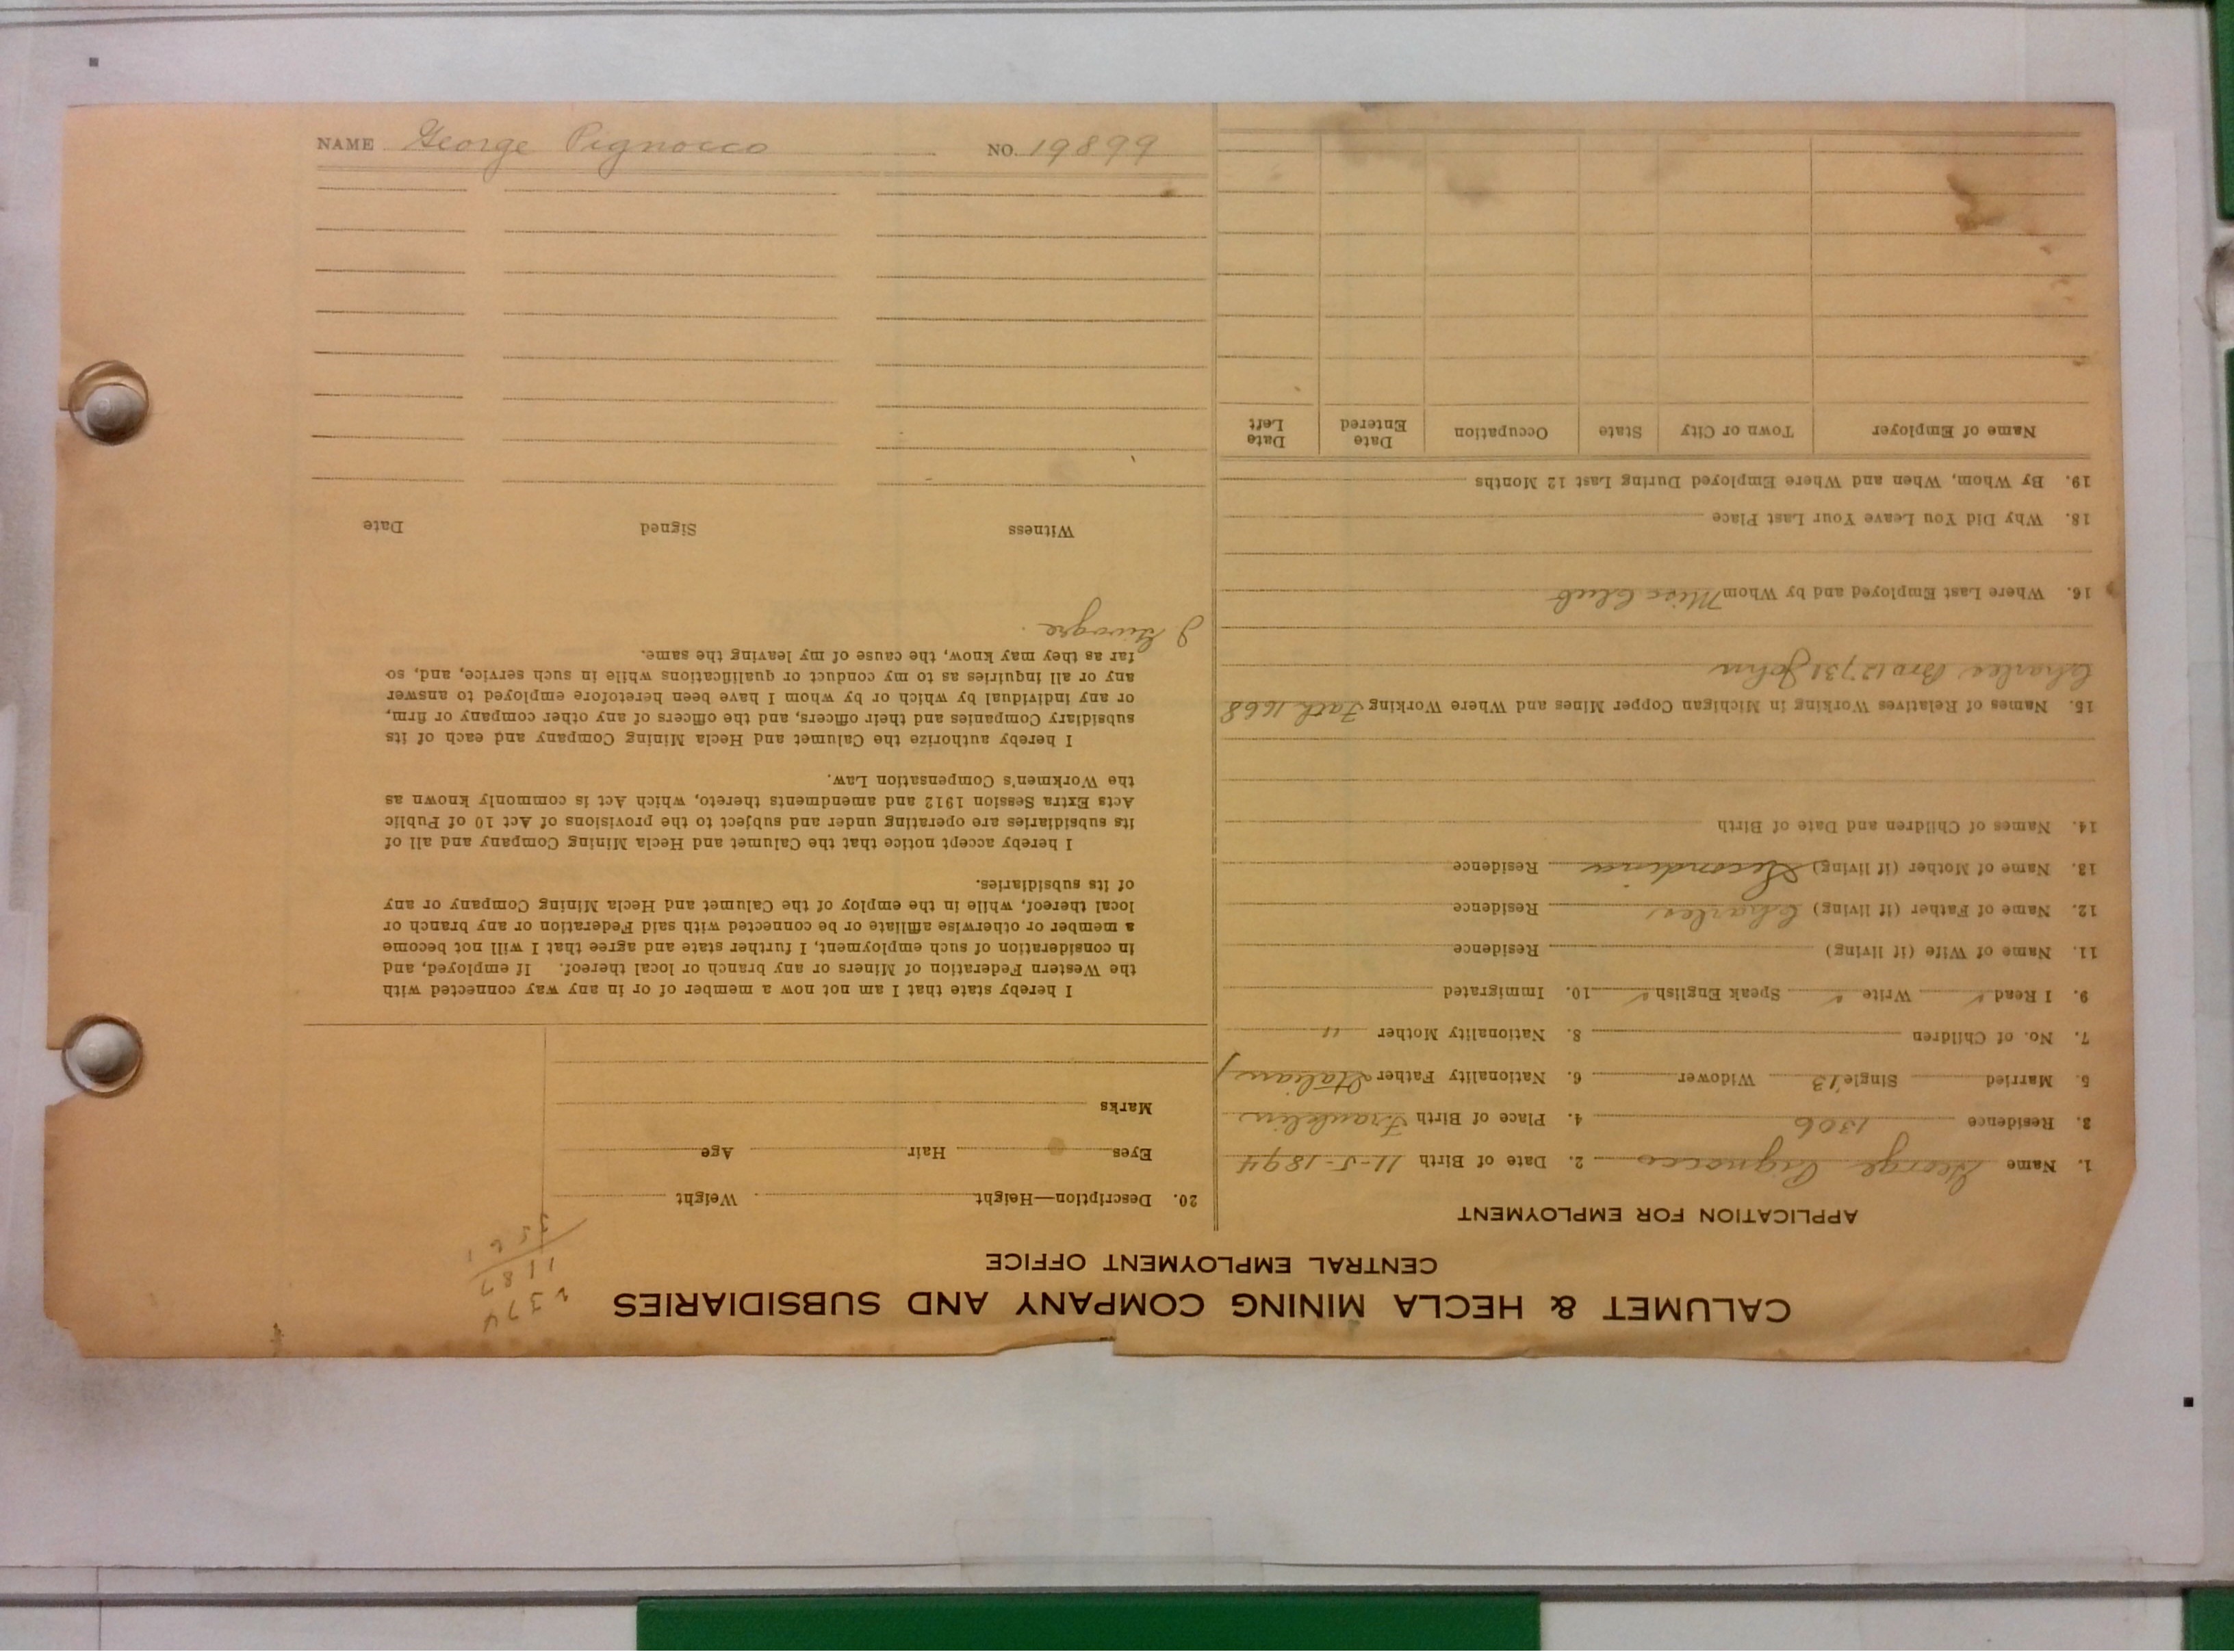 CALUMET & HECLA MINING COMPANY AND SUBSIDIARIES
CENTRAL EMPLOYMENT OFFICE
APPLICATION FOR EMPLOYMENT
1. Name George Pignocco 2. Date of Birth 11-5-1894
3. Residence 1306 4. Place of Birth Franklin
5. Married Single 13 Widower 6. Nationality Father Italian
7. No. of Children 8. Nationality Mother "
9. I Read " Write " Speak English " 10. Immigrated
11. Name of Wife (if living) Residence
12. Name of Father (if living) Charles Residence
13. Name of Mother (if living) Secondina Residence
14. Names of Children and Date of Birth
15. Names of Relatives Working in Michigan Copper Mines and Where Working Fath 1668
Charles Bro 12731 John
16. Where Last Employed and by Whom Misc Club
18. Why Did You Leave Your Last Place
19. By Whom, When and Where Employed During Last 12 Months
Name of Employer Town or City State Occupation Date Entered Date Left
2374
1187
3561
20. Description—Height Weight
Eyes Hair Age
Marks
I hereby state that I am not now a member of or in any way connected with
the Western Federation of Miners or any branch or local thereof. If employed, and
in consideration of such employment, I further state and agree that I will not become
a member or otherwise affiliate or be connected with said Federation or any branch or
local thereof, while in the employ of the Calumet and Hecla Mining Company or any
of its subsidiaries.
I hereby accept notice that the Calumet and Hecla Mining Company and all of
its subsidiaries are operating under and subject to the provisions of Act 10 of Public
Acts Extra Session 1912 and amendments thereto, which Act is commonly known as
the Workmen's Compensation Law.
I hereby authorize the Calumet and Hecla Mining Company and each of its
subsidiary Companies and their officers, and the officers of any other company or firm,
or any individual by which or by whom I have been heretofore employed to answer
any or all inquiries as to my conduct or qualifications while in such service, and, so
far as they may know, the cause of my leaving the same.
Witness Signed Date
NAME George Pignocco NO. 19899